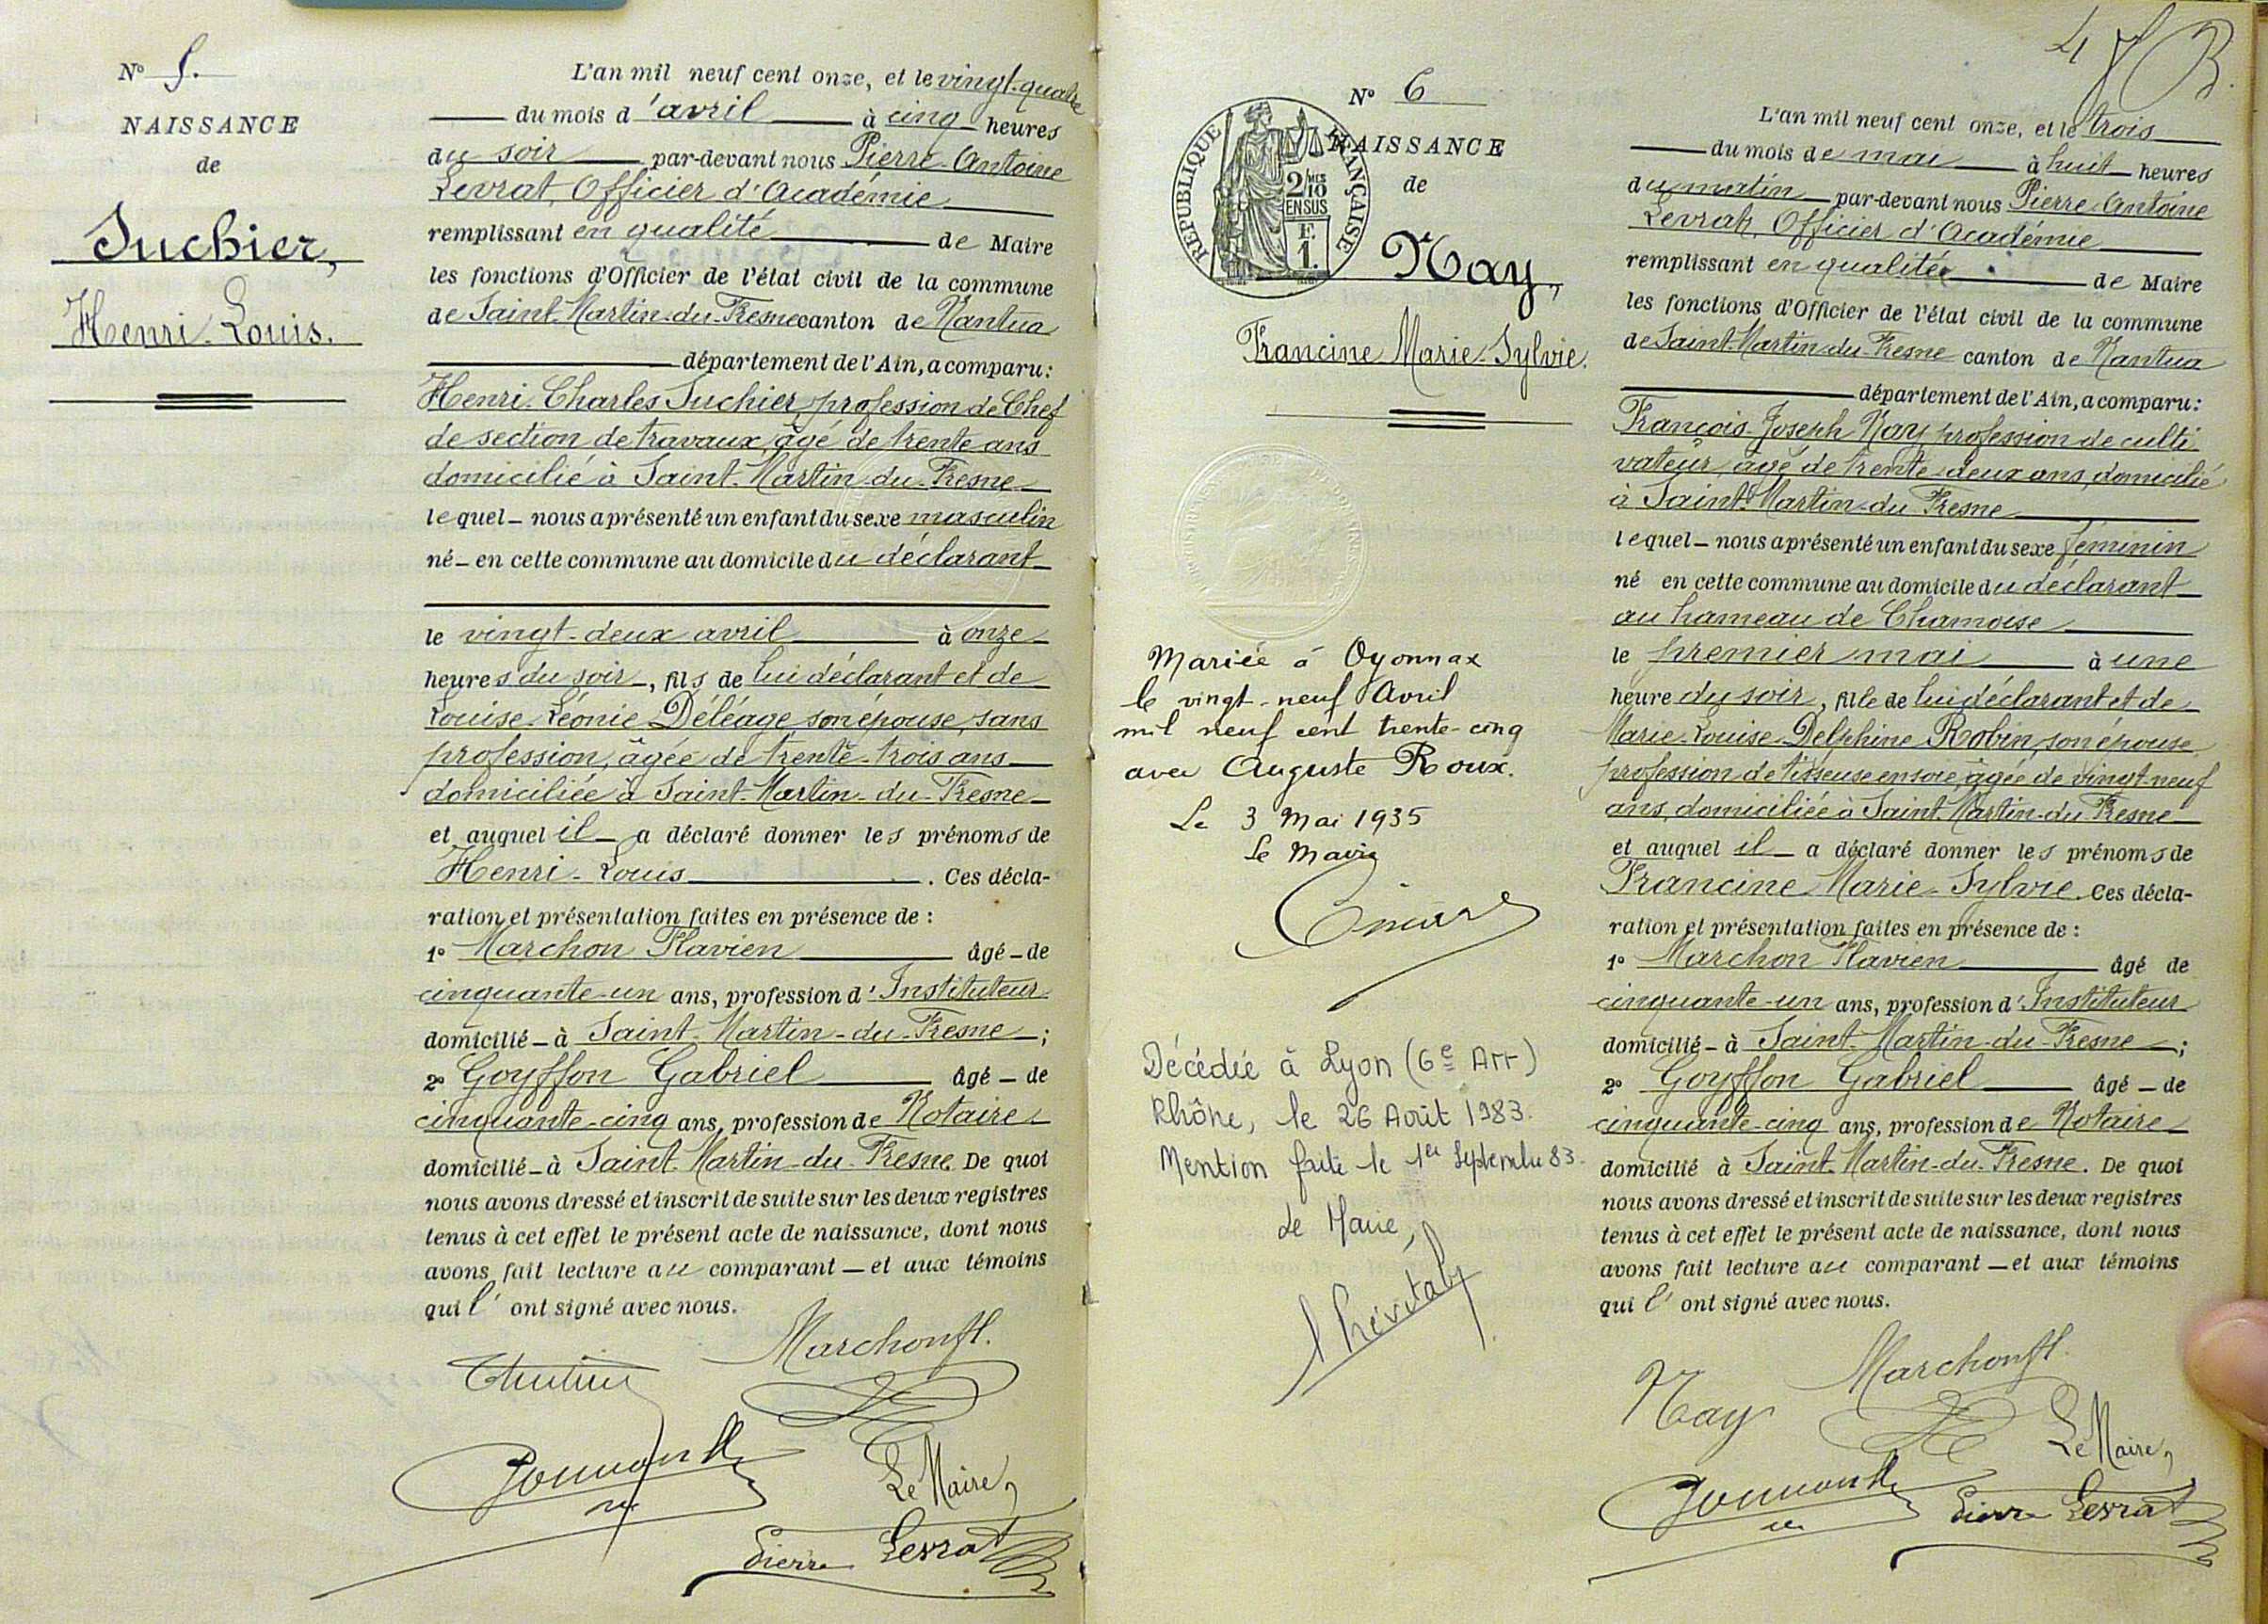 N° 5.
NAISSANCE
de
Suchier,
Henri-Louis.
L'an mil neuf cent onze, et le vingt-quatre
du mois d'avril à cinq heures
du soir par-devant nous Pierre-Antoine
Levrat, Officier d'Académie
remplissant en qualité de Maire
les fonctions d'Officier de l'état civil de la commune
de Saint-Martin-du-Fresne canton de Nantua
département de l'Ain, a comparu:
Henri-Charles Suchier, profession de Chef
de section de travaux, âgé de trente ans
domicilié à Saint-Martin-du-Fresne
lequel nous a présenté un enfant du sexe masculin
né en cette commune au domicile du déclarant
le vingt-deux avril à onze
heures du soir, fils de lui déclarant et de
Louise-Léonie Déléage son épouse, sans
profession, âgée de trente-trois ans
domiciliée à Saint-Martin-du-Fresne
et auquel il a déclaré donner les prénoms de
Henri-Louis. Ces décla-
ration et présentation faites en présence de :
1° Marchon Flavien âgé de
cinquante-un ans, profession d'Instituteur
domicilié à Saint-Martin-du-Fresne ;
2° Goyffon Gabriel âgé de
cinquante-cinq ans, profession de Notaire
domicilié à Saint-Martin-du-Fresne. De quoi
nous avons dressé et inscrit de suite sur les deux registres
tenus à cet effet le présent acte de naissance, dont nous
avons fait lecture au comparant et aux témoins
qui l'ont signé avec nous.
Marchon fl.
Le Maire,
Pierre Levrat
4
N° 6
NAISSANCE
de
RÉPUBLIQUE FRANÇAISE
2/10 MES
EN SUS
F.
1.
Nay,
Francine Marie-Sylvie.
Mariée à Oyonnax
le vingt-neuf Avril
mil neuf cent trente-cinq
avec Auguste Roux.
Le 3 Mai 1935
Le Maire
Décédée à Lyon (6e Arr)
Rhône, le 26 Août 1983.
Mention faite le 1er Septembre 83.
Le Maire,
L'an mil neuf cent onze, et le trois
du mois de mai à huit heures
du matin par-devant nous Pierre-Antoine
Levrat, Officier d'Académie
remplissant en qualité de Maire
les fonctions d'Officier de l'état civil de la commune
de Saint-Martin-du-Fresne canton de Nantua
département de l'Ain, a comparu:
François-Joseph Nay profession de culti-
vateur, âgé de trente-deux ans, domicilié
à Saint-Martin-du-Fresne
lequel nous a présenté un enfant du sexe féminin
né en cette commune au domicile du déclarant
au hameau de Chamoise
le premier mai à une
heure du soir, fille de lui déclarant et de
Marie-Louise-Delphine Robin, son épouse
profession de tisseuse en soie, âgée de vingt-neuf
ans, domiciliée à Saint-Martin-du-Fresne
et auquel il a déclaré donner les prénoms de
Francine Marie-Sylvie. Ces décla-
ration et présentation faites en présence de :
1° Marchon Flavien âgé de
cinquante-un ans, profession d'Instituteur
domicilié à Saint-Martin-du-Fresne ;
2° Goyffon Gabriel âgé de
cinquante-cinq ans, profession de Notaire
domicilié à Saint-Martin-du-Fresne. De quoi
nous avons dressé et inscrit de suite sur les deux registres
tenus à cet effet le présent acte de naissance, dont nous
avons fait lecture au comparant et aux témoins
qui l'ont signé avec nous.
Nay
Marchon fl.
Le Maire,
Pierre Levrat